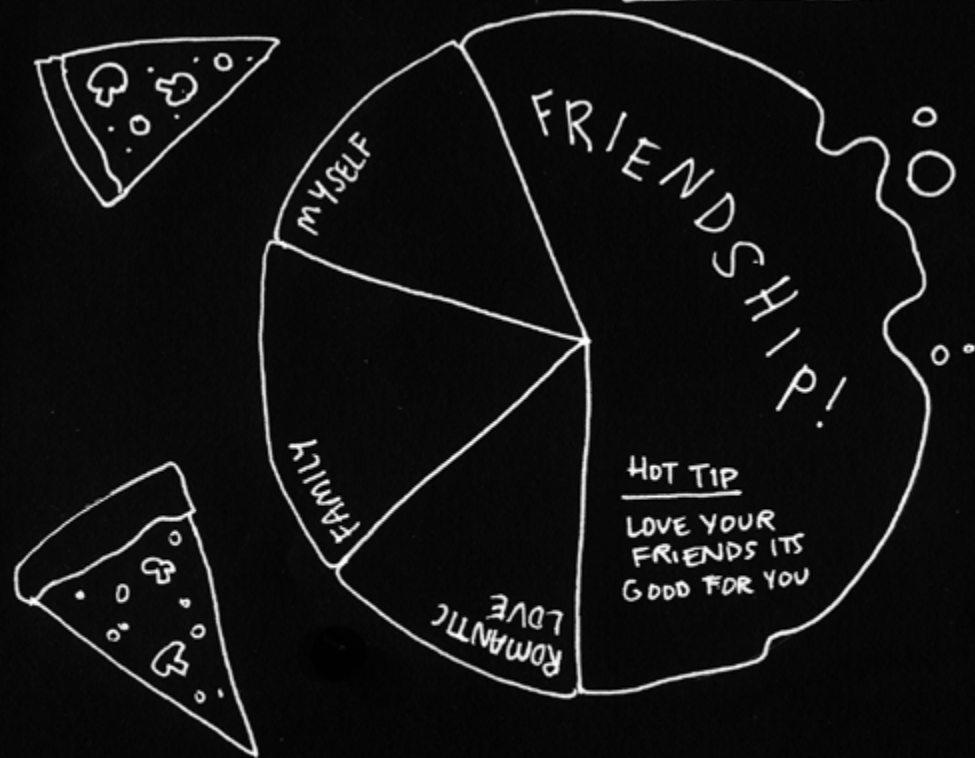 FRIENDSHIP!
MYSELF
FAMILY
ROMANTIC
LOVE
HOT TIP
LOVE YOUR
FRIENDS ITS
GOOD FOR YOU